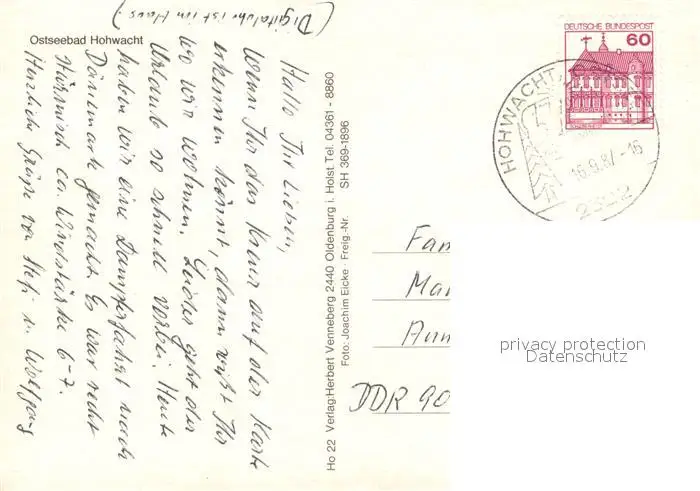 Ostseebad Hohwacht
(Digitaluhr ist im Haus!)
Hallo Ihr Lieben,
wenn Ihr das Kreuz auf der Karte
erkennen könnt, dann wißt Ihr
wo wir wohnen. Leider geht der
Urlaub so schnell vorbei. Heute
haben wir eine Dampferfahrt nach
Dänemark gemacht. Es war recht
stürmisch ca. Windstärke 6-7.
Herzliche Grüße von Stefi u. Wolfgang
Ho 22 Verlag: Herbert Venneberg 2440 Oldenburg i. Holst Tel. 04361 - 8860
Foto: Joachim Eicke · Freig.-Nr. SH 369-1896
DEUTSCHE BUNDESPOST
60
HOHWACHT
16.9.87-16
2322
Fam
Mar
Ann
DDR 90
privacy protection
Datenschutz